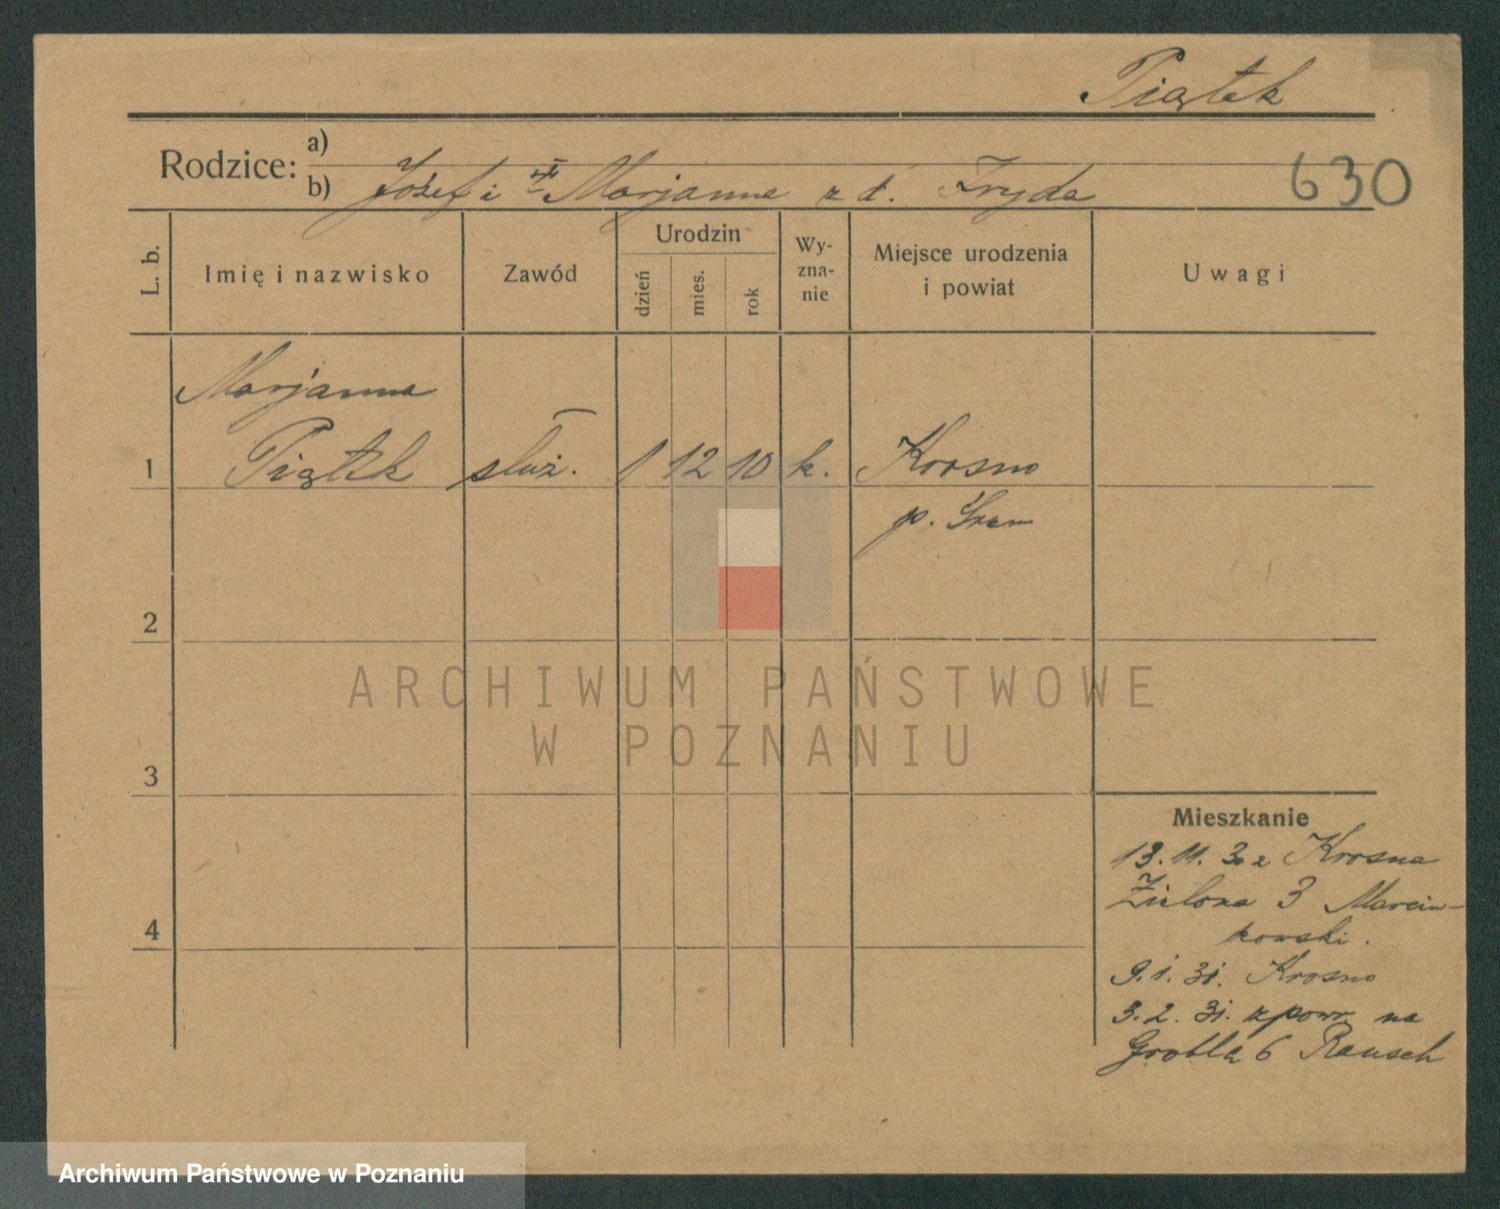 Piątek
Rodzice: a)
b) Józef i Marjanna z d. Fryda
630
L. b.
Imię i nazwisko
Zawód
Urodzin
dzień
mies.
rok
Wy-
zna-
nie
Miejsce urodzenia
i powiat
Uwagi
Marjanna
1 Piątek służ. 1 12 10 k. Krosno
p. Śrem
2
3
4
Mieszkanie
13. 11. 30 z Krosna
Zielona 3 Marcin-
kowski.
9. 1. 31. Krosno
3. 2. 31. z powr. na
Grobla 6 Rausch
ARCHIWUM PAŃSTWOWE
W POZNANIU
Archiwum Państwowe w Poznaniu